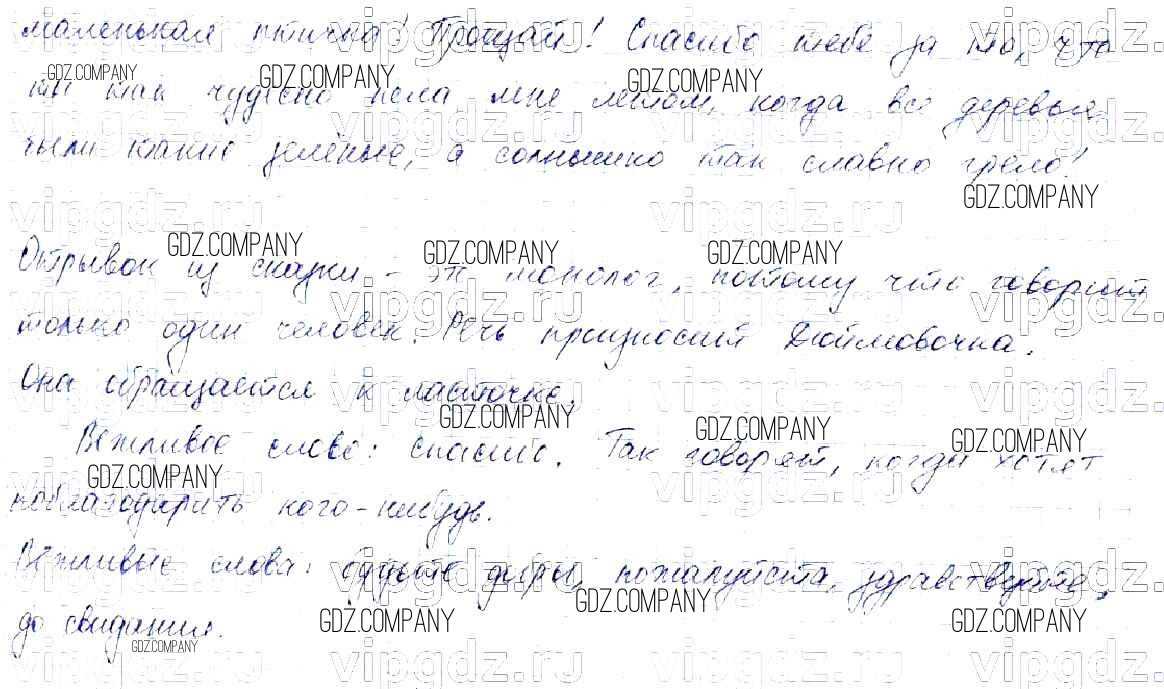 маленькая птичка! Прощай! Спасибо тебе за то, что
ты так чудесно пела мне летом, когда все деревья
были такие зелёные, а солнышко так славно грело!
Отрывок из сказки - это монолог, потому что говорит
только один человек. Речь произносит Дюймовочка.
Она обращается к ласточке.
Вежливое слово: спасибо. Так говорят, когда хотят
поблагодарить кого-нибудь.
Вежливые слова: будьте добры, пожалуйста, здравствуйте,
до свидания.